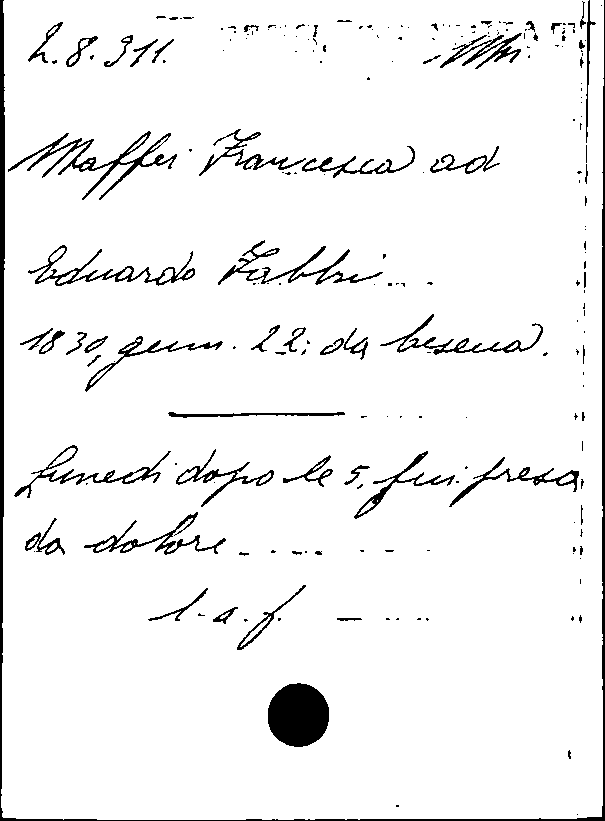 2.8.311. Ms.
Maffei Francesca ad
Eduardo Fabbri...
1830, genn. 22: da Cesena.
Lunedì dopo le 5, fui presa
da dolore ........
l.a.f. — ....